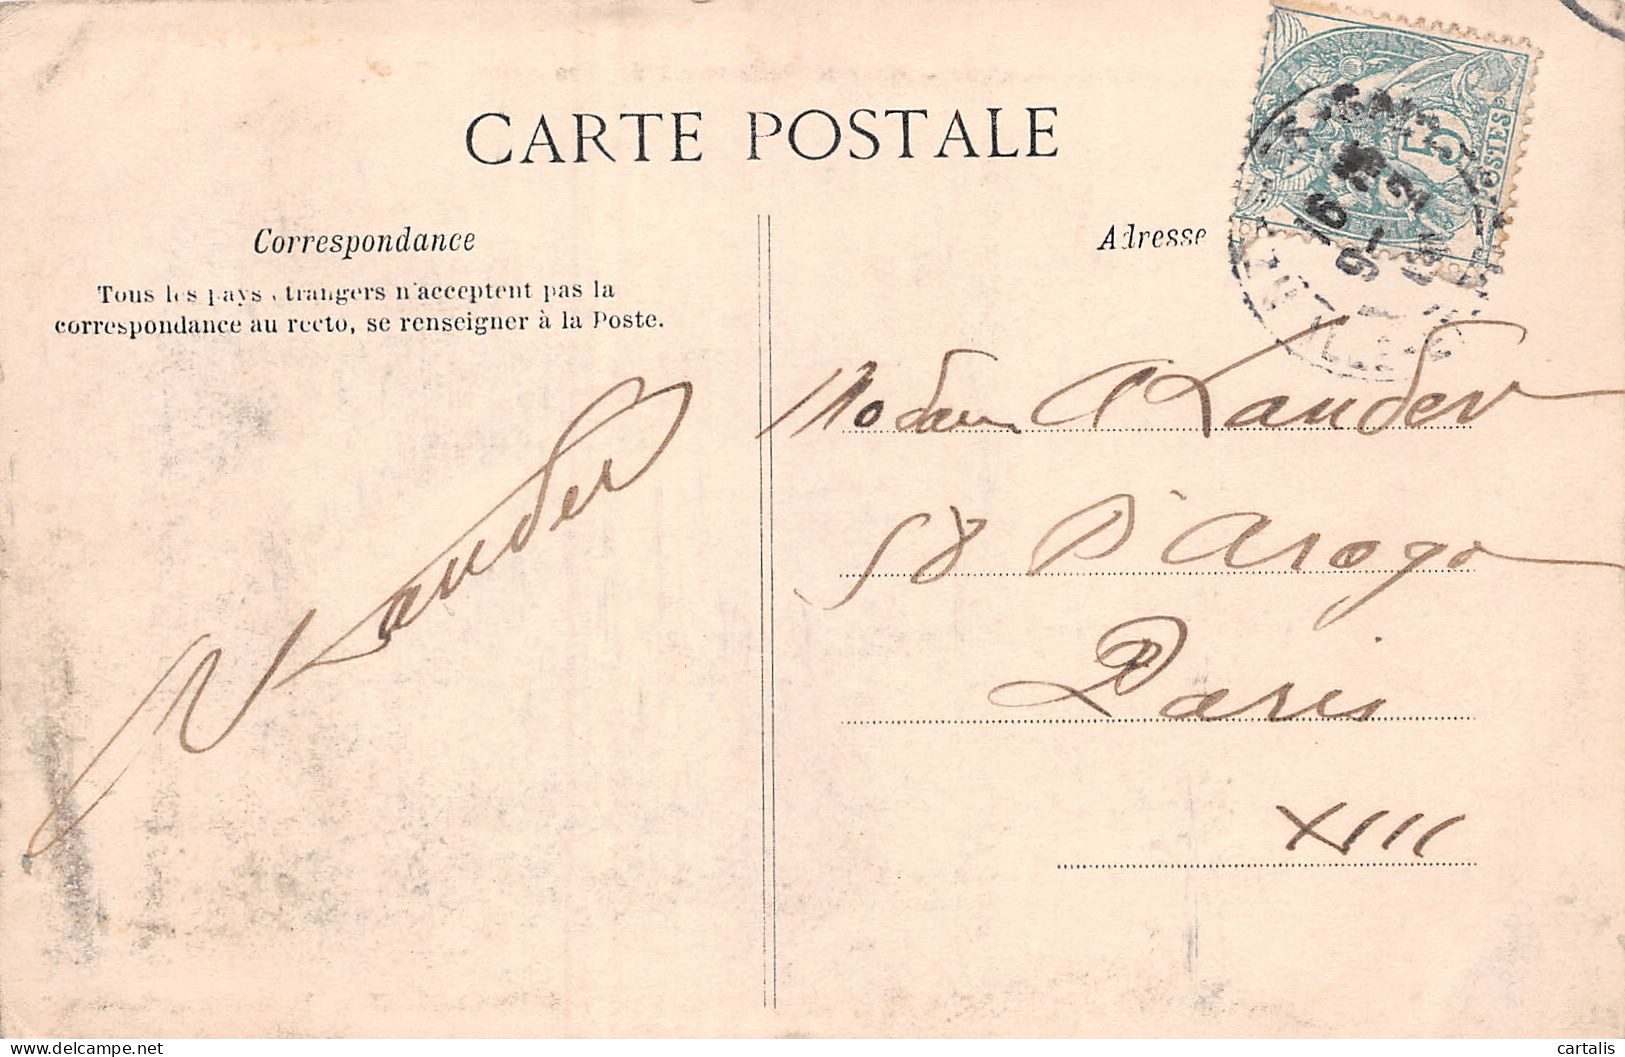 CARTE POSTALE
Correspondance
Tous les pays étrangers n'acceptent pas la
correspondance au recto, se renseigner à la Poste.
Adresse
5
POSTES
16
Lauder
Madame A Lauder
58 Bd Arago
Paris
XIII
delcampe.net
cartalis